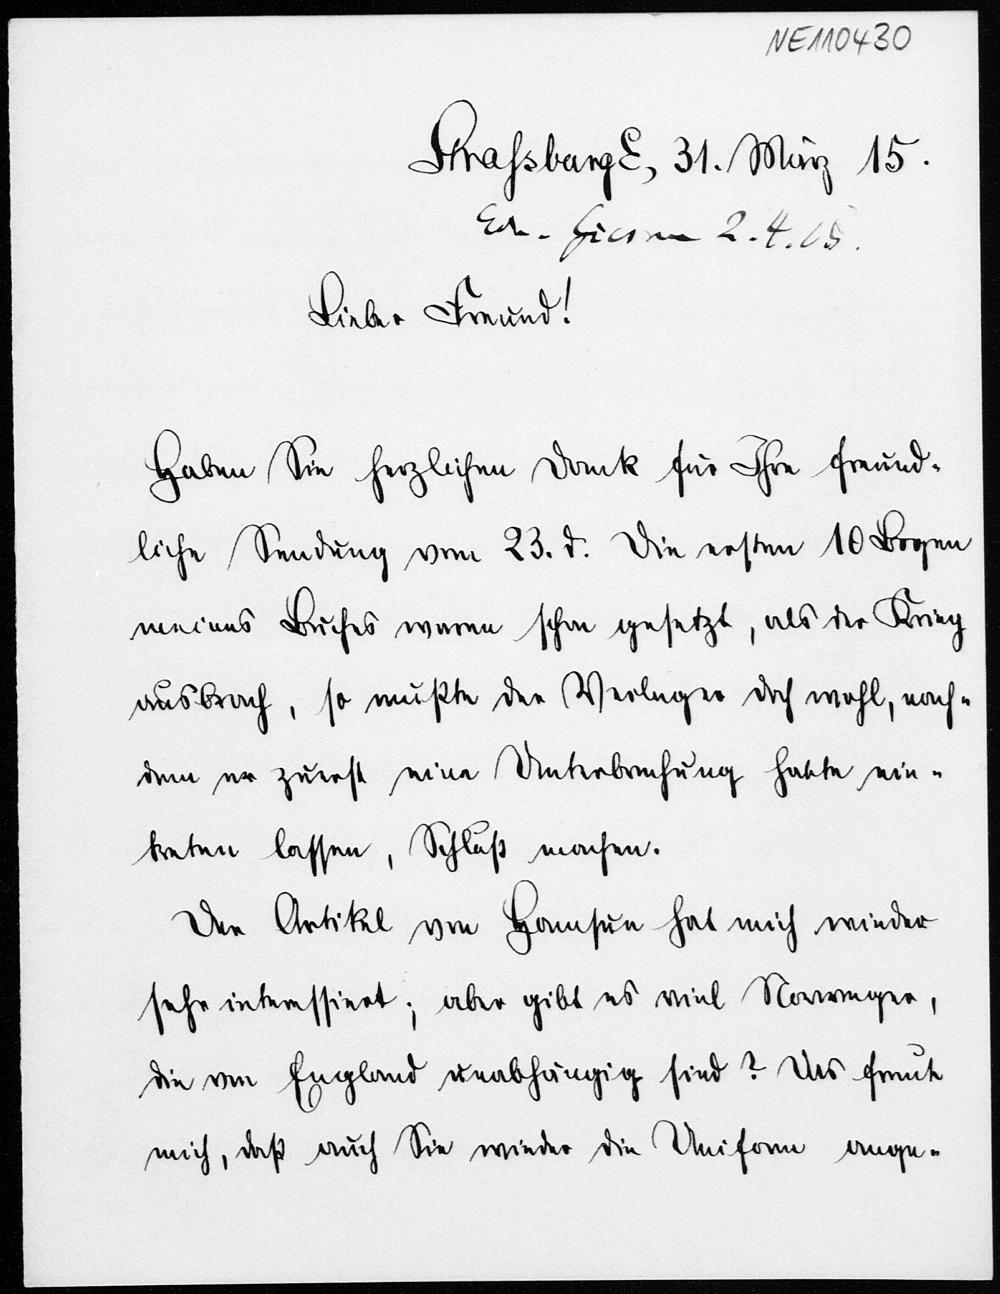 NE110430
Strassburg E, 31. März 15.
2.4.15.
Lieber Freund!
Haben Sie herzlichen Dank für Ihre freund-
liche Sendung vom 23. d. Die ersten 10 Bogen
meines Buches waren schon gesetzt, als der Krieg
ausbrach, so mußte der Verleger doch wohl, nach-
dem er zuerst eine Unterbrechung hatte ein-
treten lassen, Schluß machen.
Der Artikel von Hamsun hat mich wieder
sehr interessiert; aber gibt es viel Norweger,
die von England unabhängig sind? Es freut
mich, daß auch Sie wieder die Uniform ange-